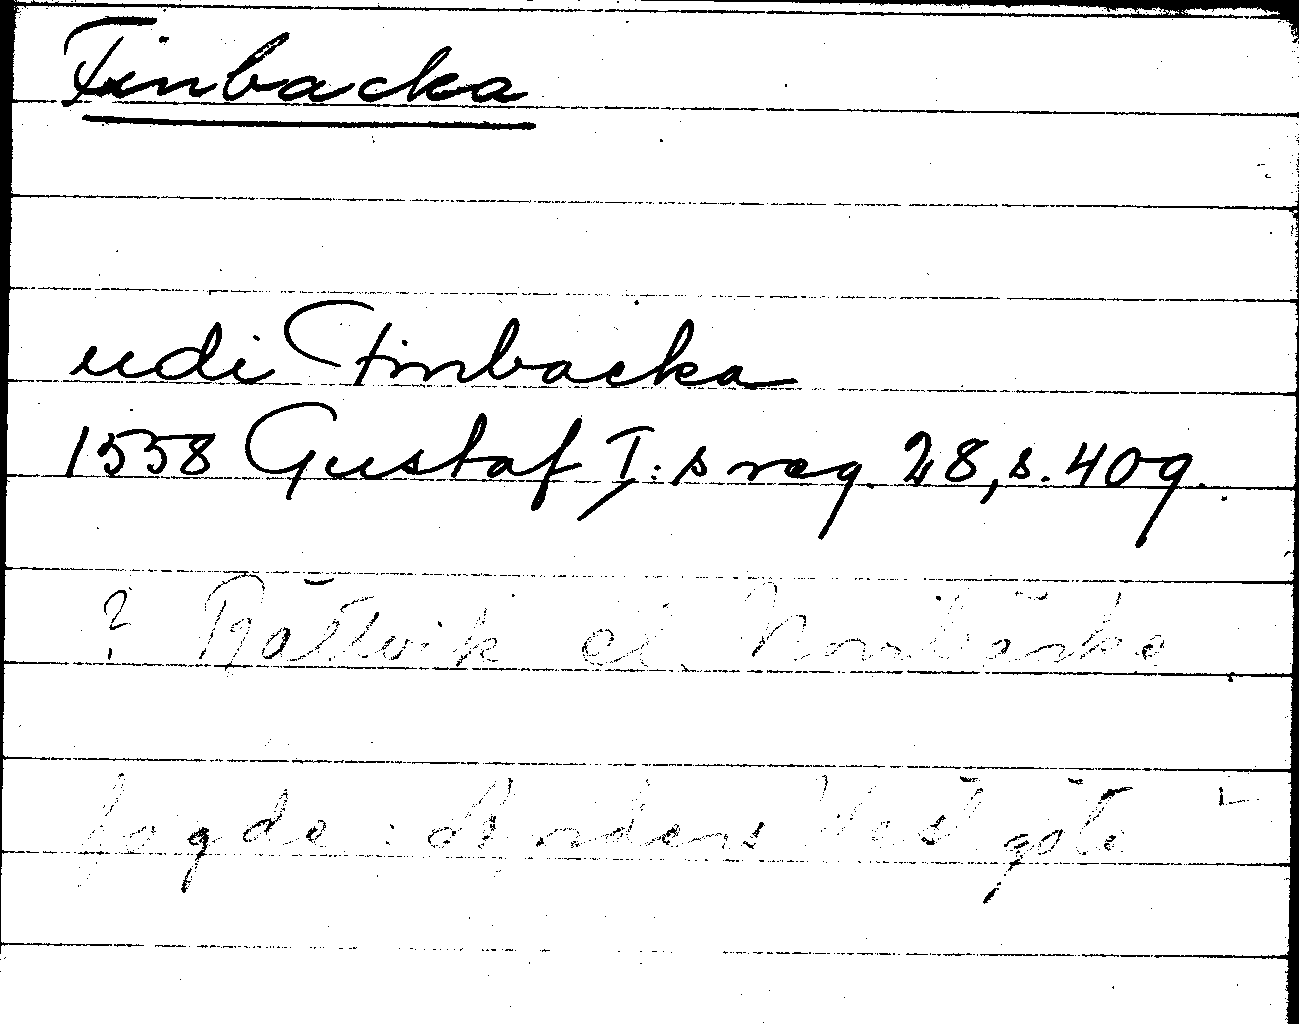 Finbacka
udi Finbacka
1558 Gustaf I:s reg. 28, s. 409.
? Rättvik el. Norrbärke
fogde: Anders Västgöte